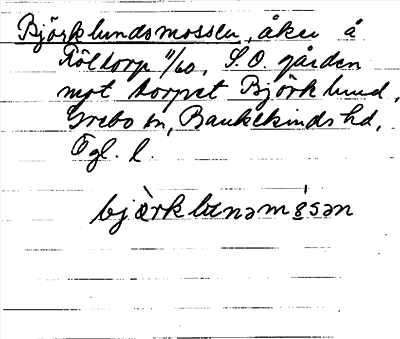 Björklundsmossen, åker å
Föltorp 11/60, S.O. gården
mot torpet Björklund,
Grebo sn, Bankekinds hd,
Ögl. l.
bjærklunəmåsən